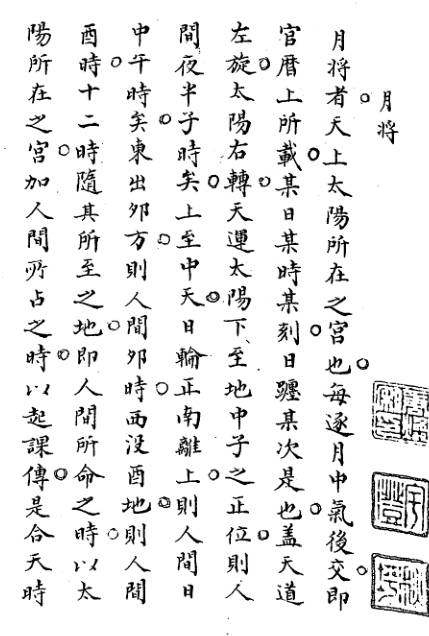 月将
月将者天上太陽所在之宮也每逐月中氣後交即
官暦上所載某日某時某刻日躔某次是也盖天道
左旋太陽右轉天運太陽下至地中子之正位則人
間夜半子時矣上至中天日輪正南離上則人間日
中午時矣東出夘方則人間夘時西没酉地則人間
酉時十二時隨其所至之地即人間所命之時以太
陽所在之宮加人間所占之時以起課傳是合天時